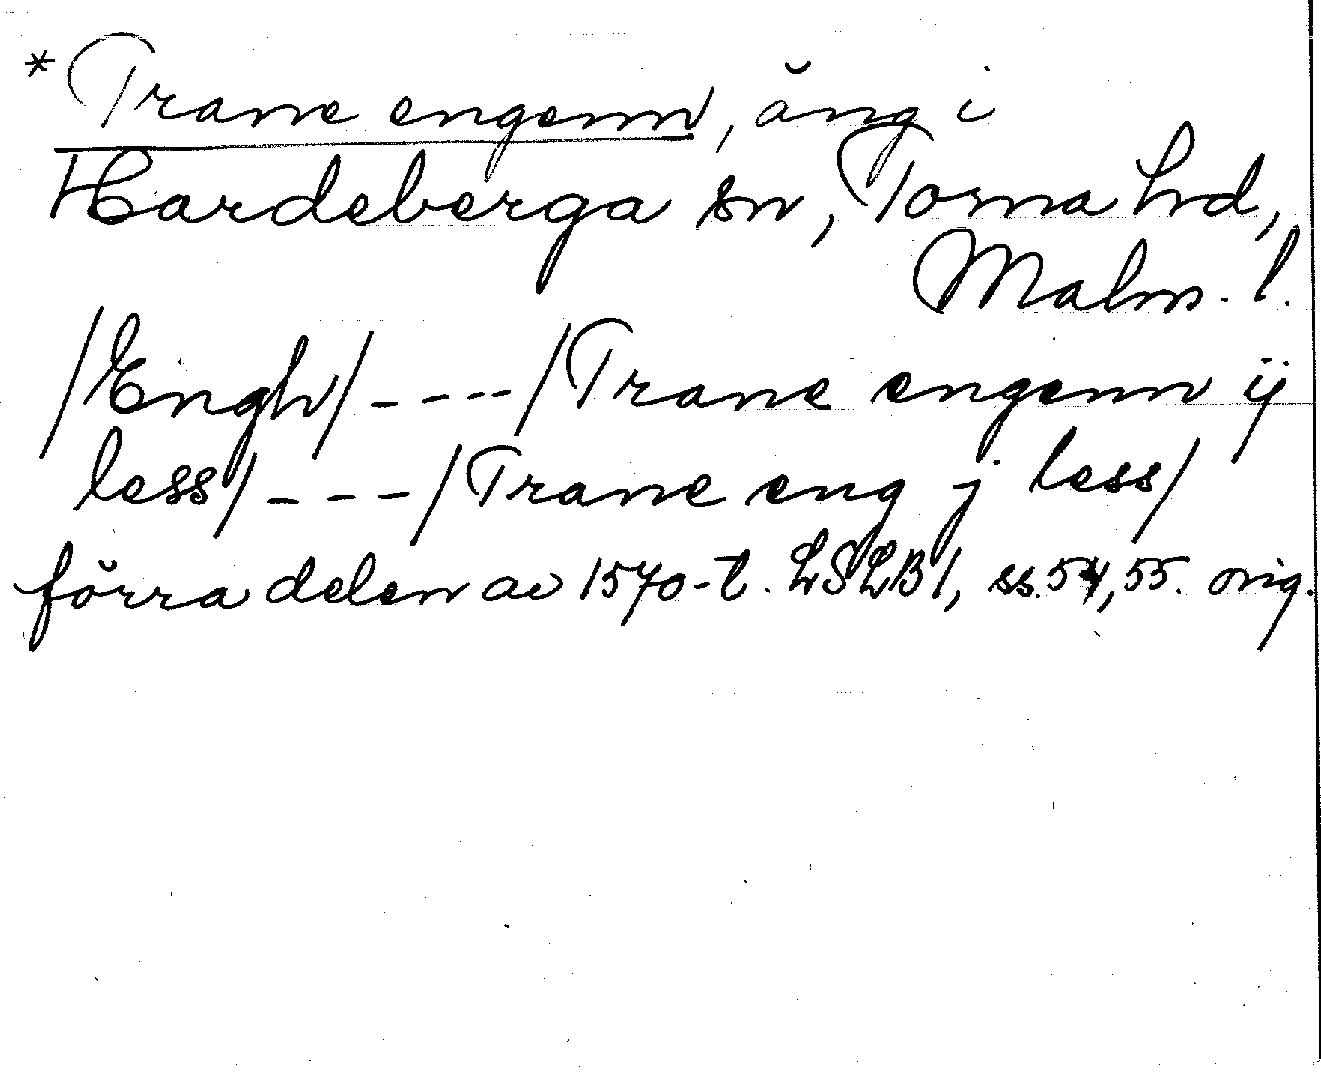 *Trane engenn, äng i
Hardeberga sn, Torna hd,
Malm. l.
/Engh/----/Trane engenn ij
less/----/Trane eng j less/
förra delen av 1570-t. LSLB I, ss. 54, 55. orig.